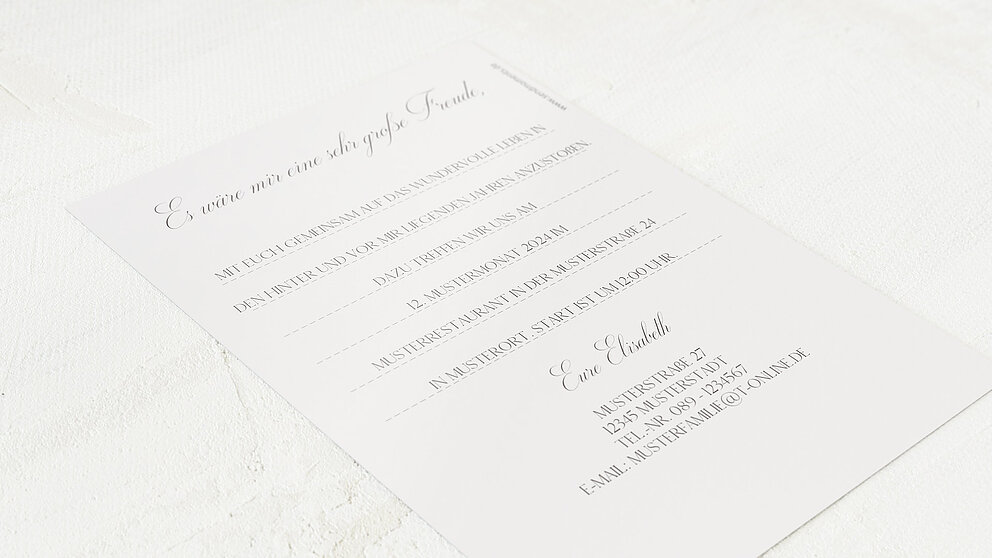 Es wäre mir eine sehr große Freude,
MIT EUCH GEMEINSAM AUF DAS WUNDERVOLLE LEBEN IN
DEN HINTER UND VOR MIR LIEGENDEN JAHREN ANZUSTOßEN.
DAZU TREFFEN WIR UNS AM
12. MUSTERMONAT 2024 IM
MUSTERRESTAURANT IN DER MUSTERSTRAßE 24
IN MUSTERORT . START IST UM 12:00 UHR.
Eure Elisabeth
MUSTERSTRAßE 27
12345 MUSTERSTADT
TEL.-NR. 089 - 1234567
E-MAIL: MUSTERFAMILIE@T-ONLINE.DE